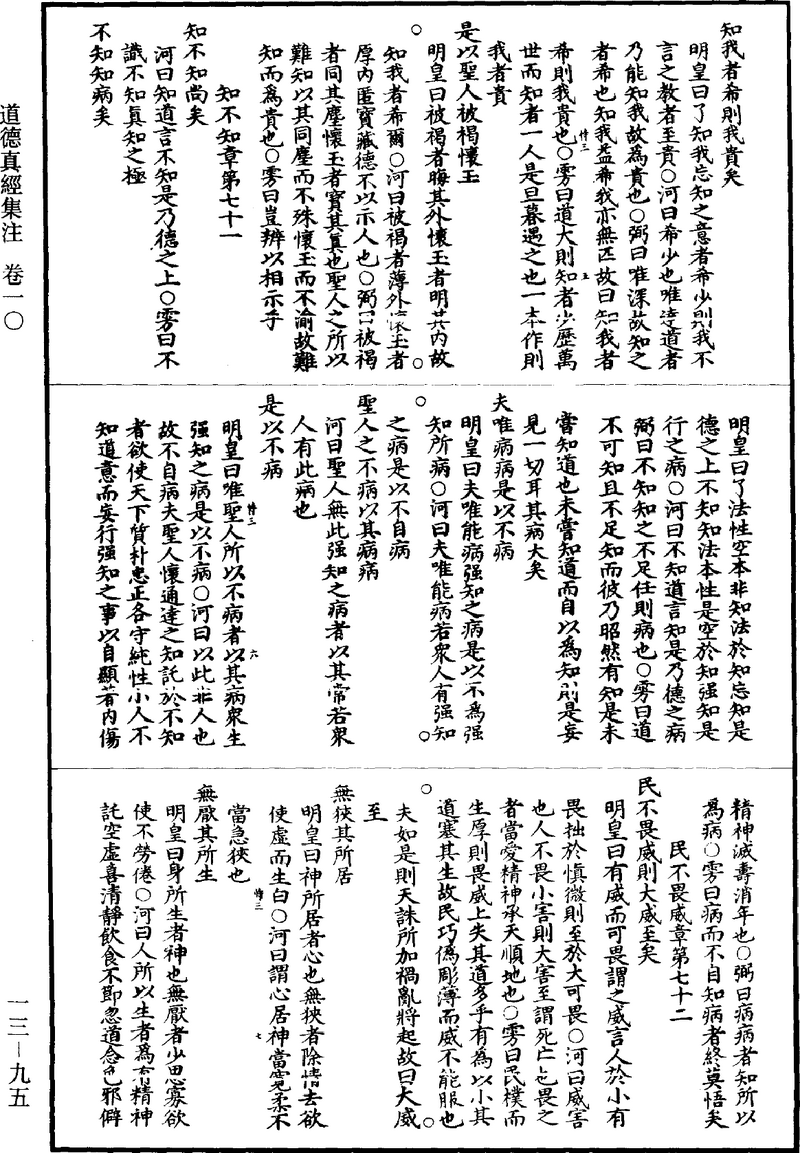 知我者希則我貴矣
明皇曰了知我忘知之意者希少則我不
言之教者至貴○河曰希少也唯達道者
乃能知我故為貴也○弼曰唯深故知之
者希也知我益希我亦無匹故曰知我者
希則我貴也○雱曰道大則知者少歷萬
世而知者一人是旦暮遇之也一本作則
我者貴
是以聖人被褐懷玉
明皇曰被褐者晦其外懷玉者明其內故
知我者希爾○河曰被褐者薄外懷玉者
厚內匿寶藏德不以示人也○弼曰被褐
者同其塵懷玉者寶其真也聖人之所以
難知以其同塵而不殊懷玉而不渝故難
知而為貴也○雱曰豈辨以相示乎
知不知章第七十一
知不知尚矣
河曰知道言不知是乃德之上○雱曰不
識不知真知之極
不知知病矣
明皇曰了法性空本非知法於知忘知是
德之上不知知法本性是空於知强知是
行之病○河曰不知道言知是乃德之病
弼曰不知知之不足任則病也○雱曰道
不可知且不足知而彼乃昭然有知是未
嘗知道也未嘗知道而自以為知則是妄
見一切耳其病大矣
夫唯病病是以不病
明皇曰夫唯能病强知之病是以不為强
知所病○河曰夫唯能病若衆人有强知
之病是以不自病
聖人之不病以其病病
河曰聖人無此强知之病者以其常若衆
人有此病也
是以不病
明皇曰唯聖人所以不病者以其病衆生
强知之病是以不病○河曰以此非人也
故不自病夫聖人懷通達之知託於不知
者欲使天下質朴忠正各守純性小人不
知道意而妄行强知之事以自顯著內傷
精神減壽消年也○弼曰病病者知所以
為病○雱曰病而不自知病者終莫悟矣
民不畏威章第七十二
民不畏威則大威至矣
明皇曰有威而可畏謂之威言人於小有
畏拙於慎微則至於大可畏○河曰威害
也人不畏小害則大害至謂死亡也畏之
者當愛精神承天順地也○雱曰民樸而
生厚則畏威上失其道多乎有為以小其
道塞其生故民巧偽彫薄而威不能服也
夫如是則天誅所加禍亂將起故曰大威
至
無狹其所居
明皇曰神所居者心也無狹者除情去欲
使虛而生白○河曰謂心居神當寬柔不
當急狹也
無厭其所生
明皇曰身所生者神也無厭者少思寡欲
使不勞倦○河曰人所以生者為有精神
託空虛喜清靜飲食不節忽道念色邪僻
道德真經集注　卷一〇
一三—九五